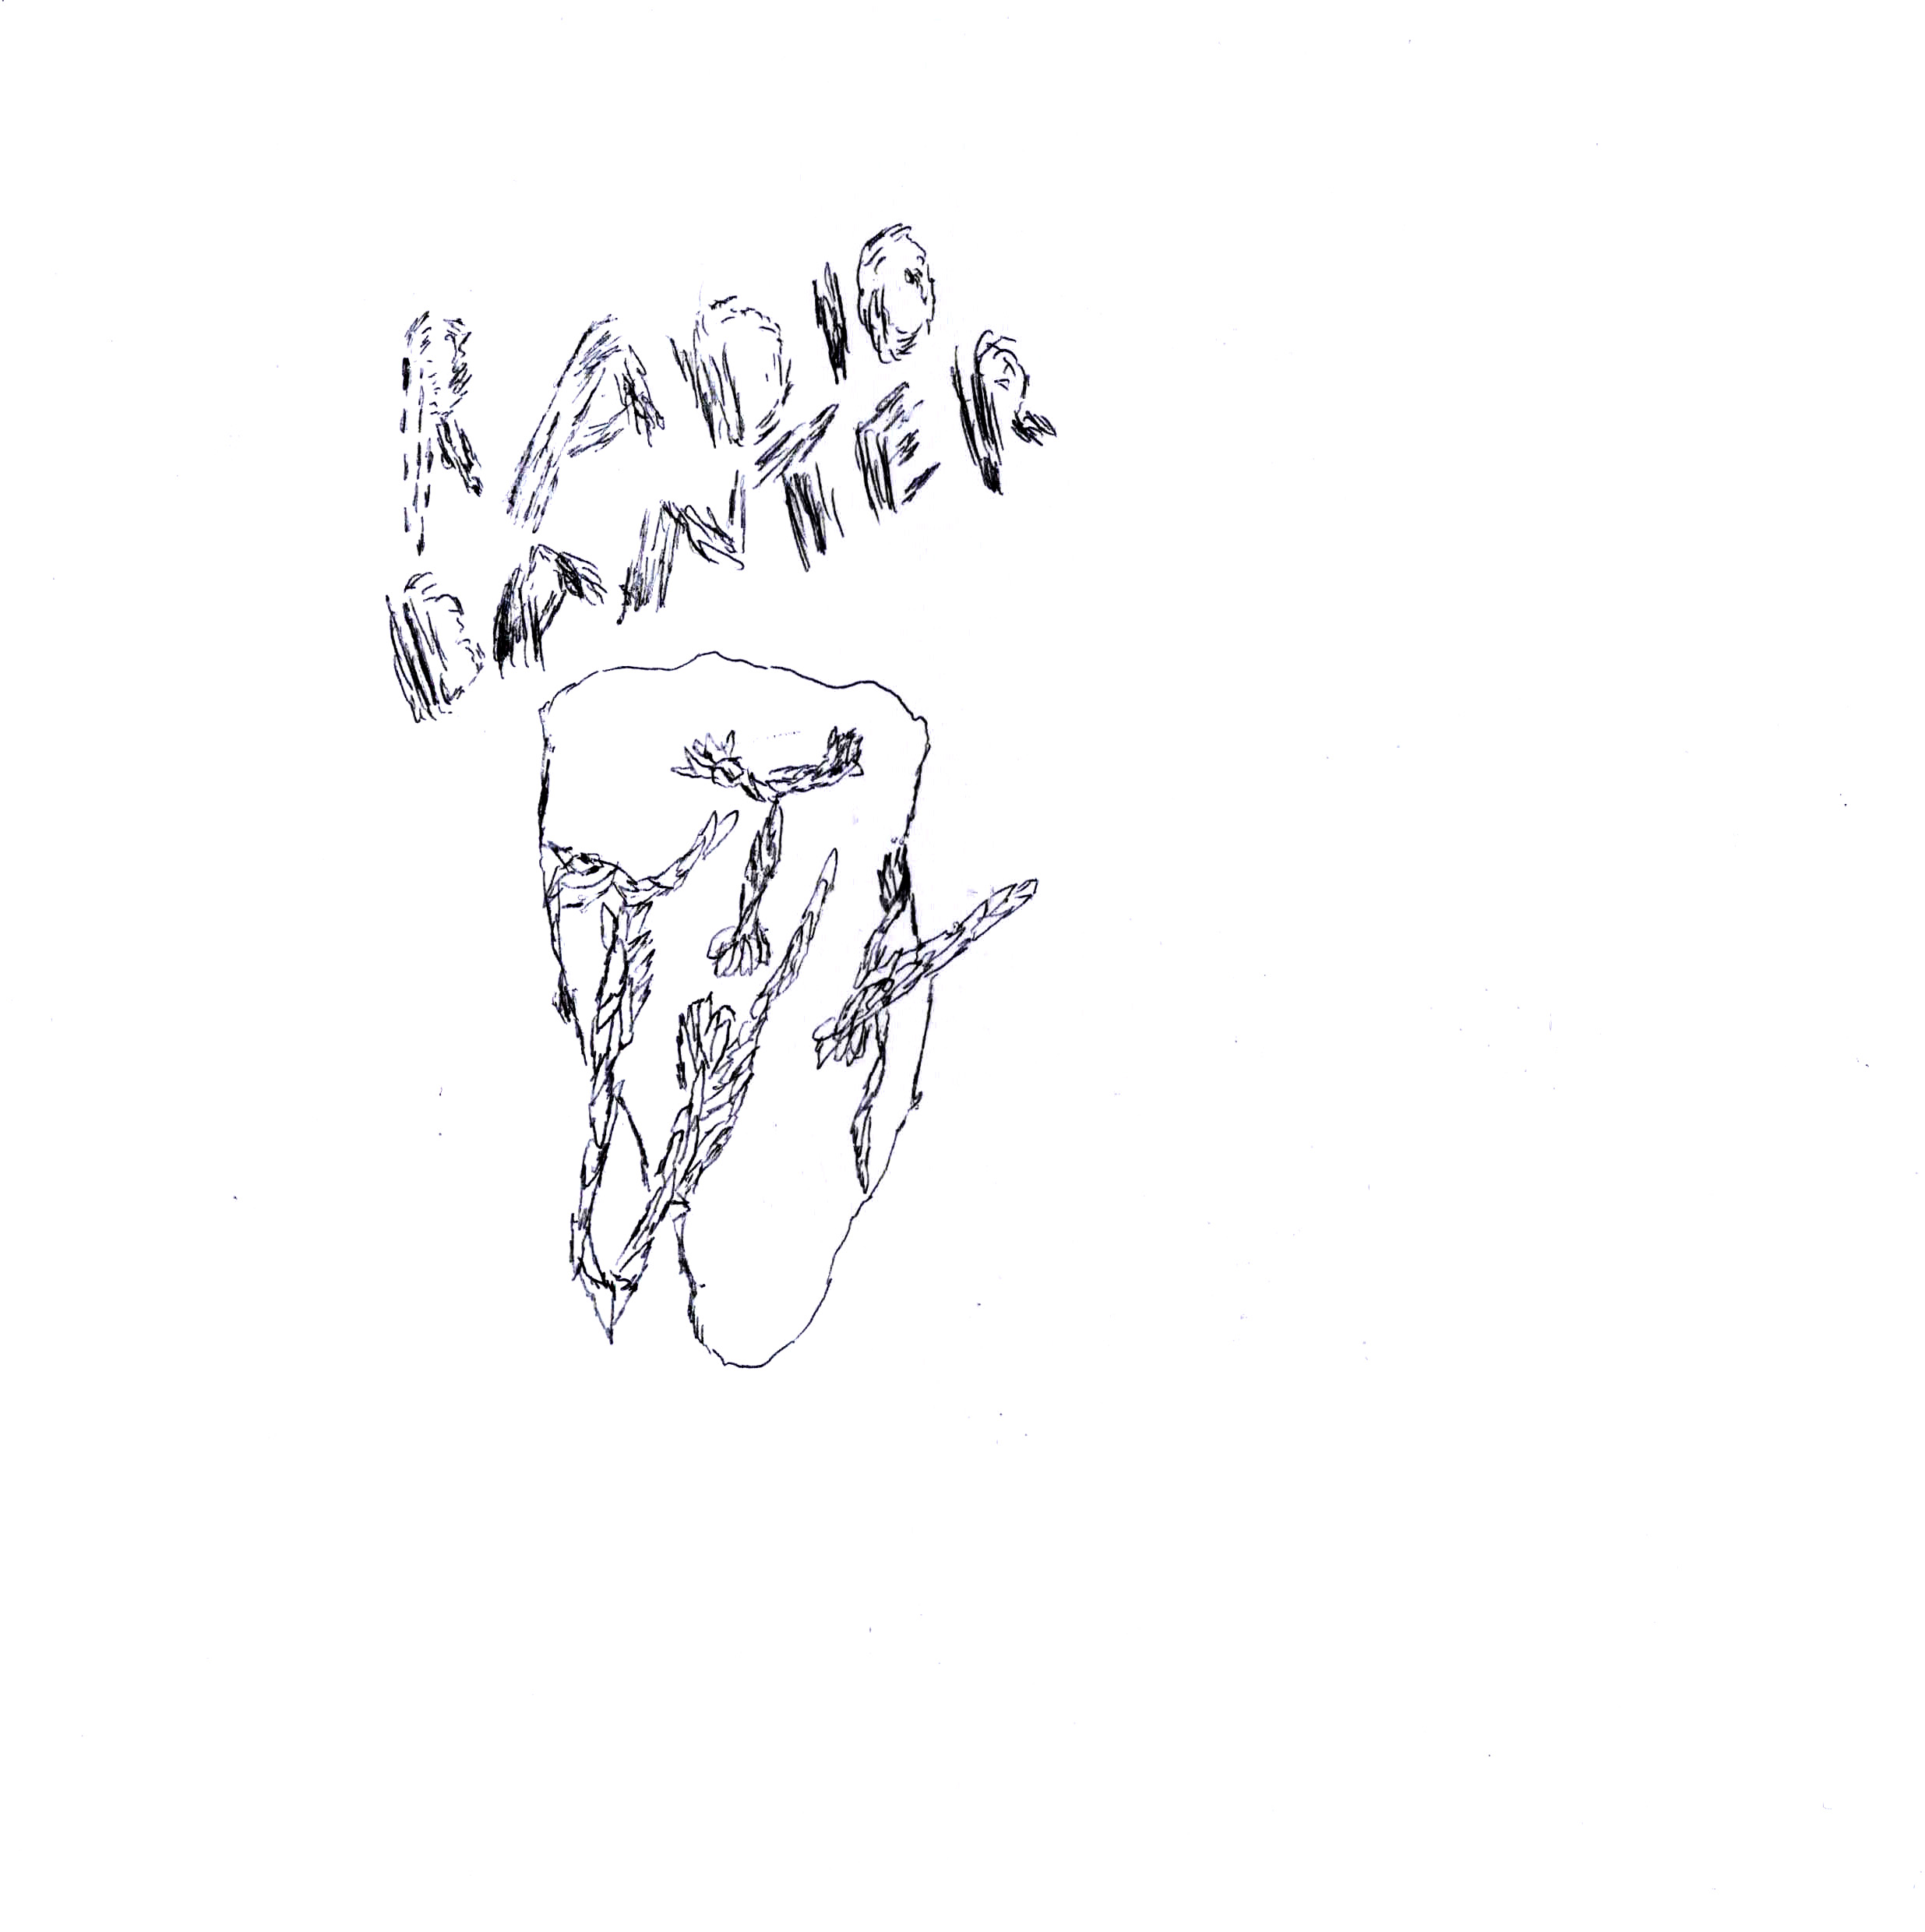 RADIO
BANTER